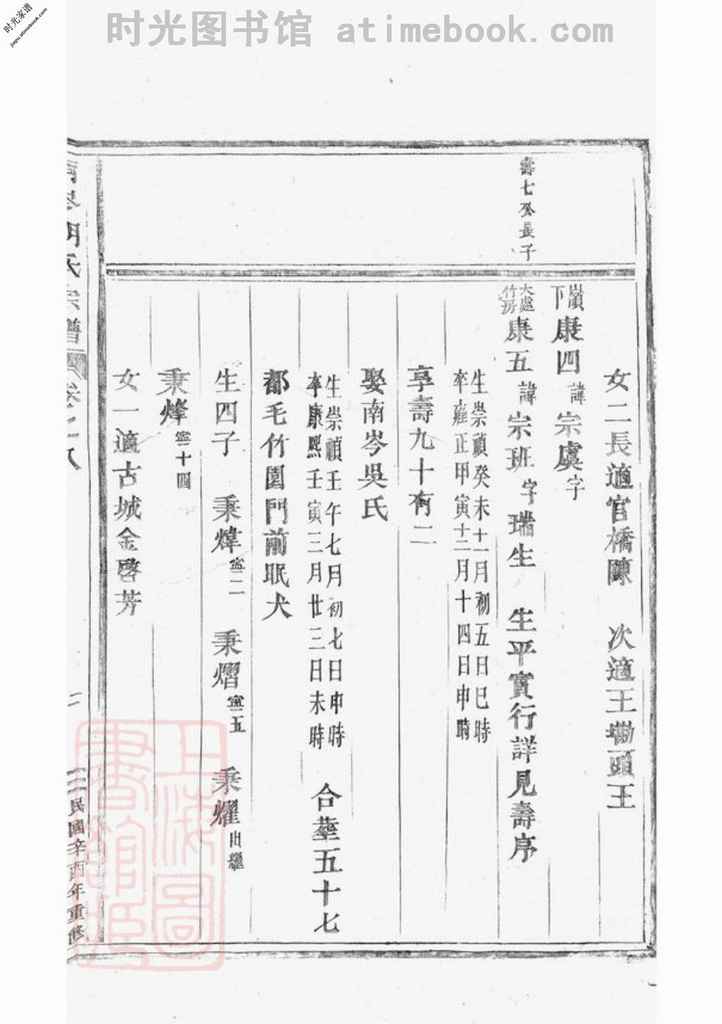 时光图书馆 atimebook.com
时光家谱
jiapu.atimebook.com
壽七公長子
女二長適官橋陳 次適王墈頭王
嶺下康四諱宗虞字
大處竹房康五諱宗班字瑞生 生平實行詳見壽序
生崇禎癸未十一月初五日巳時
卒雍正甲寅十二月十四日申時
享壽九十有二
娶南岑吳氏
生崇禎壬午七月初七日申時
卒康熙壬寅三月廿三日未時 合葬五十七
都毛竹園門前眠犬
生四子 秉煒寧二 秉熠寧五 秉燿出繼
秉烽寧十四
女一適古城金啓芳
胡氏宗譜 卷之八
民國辛酉年重修
上海圖書館藏